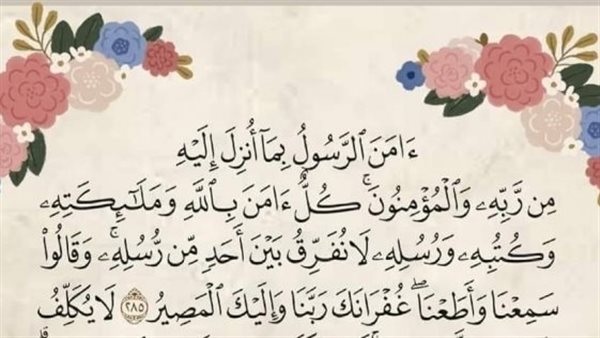 ءَامَنَ ٱلرَّسُولُ بِمَآ أُنزِلَ إِلَيْهِ
مِن رَّبِّهِۦ وَٱلْمُؤْمِنُونَ ۚ كُلٌّ ءَامَنَ بِٱللَّهِ وَمَلَـٰٓئِكَتِهِۦ
وَكُتُبِهِۦ وَرُسُلِهِۦ لَا نُفَرِّقُ بَيْنَ أَحَدٍ مِّن رُّسُلِهِۦ ۚ وَقَالُوا۟
سَمِعْنَا وَأَطَعْنَا ۖ غُفْرَانَكَ رَبَّنَا وَإِلَيْكَ ٱلْمَصِيرُ ٢٨٥ لَا يُكَلِّفُ